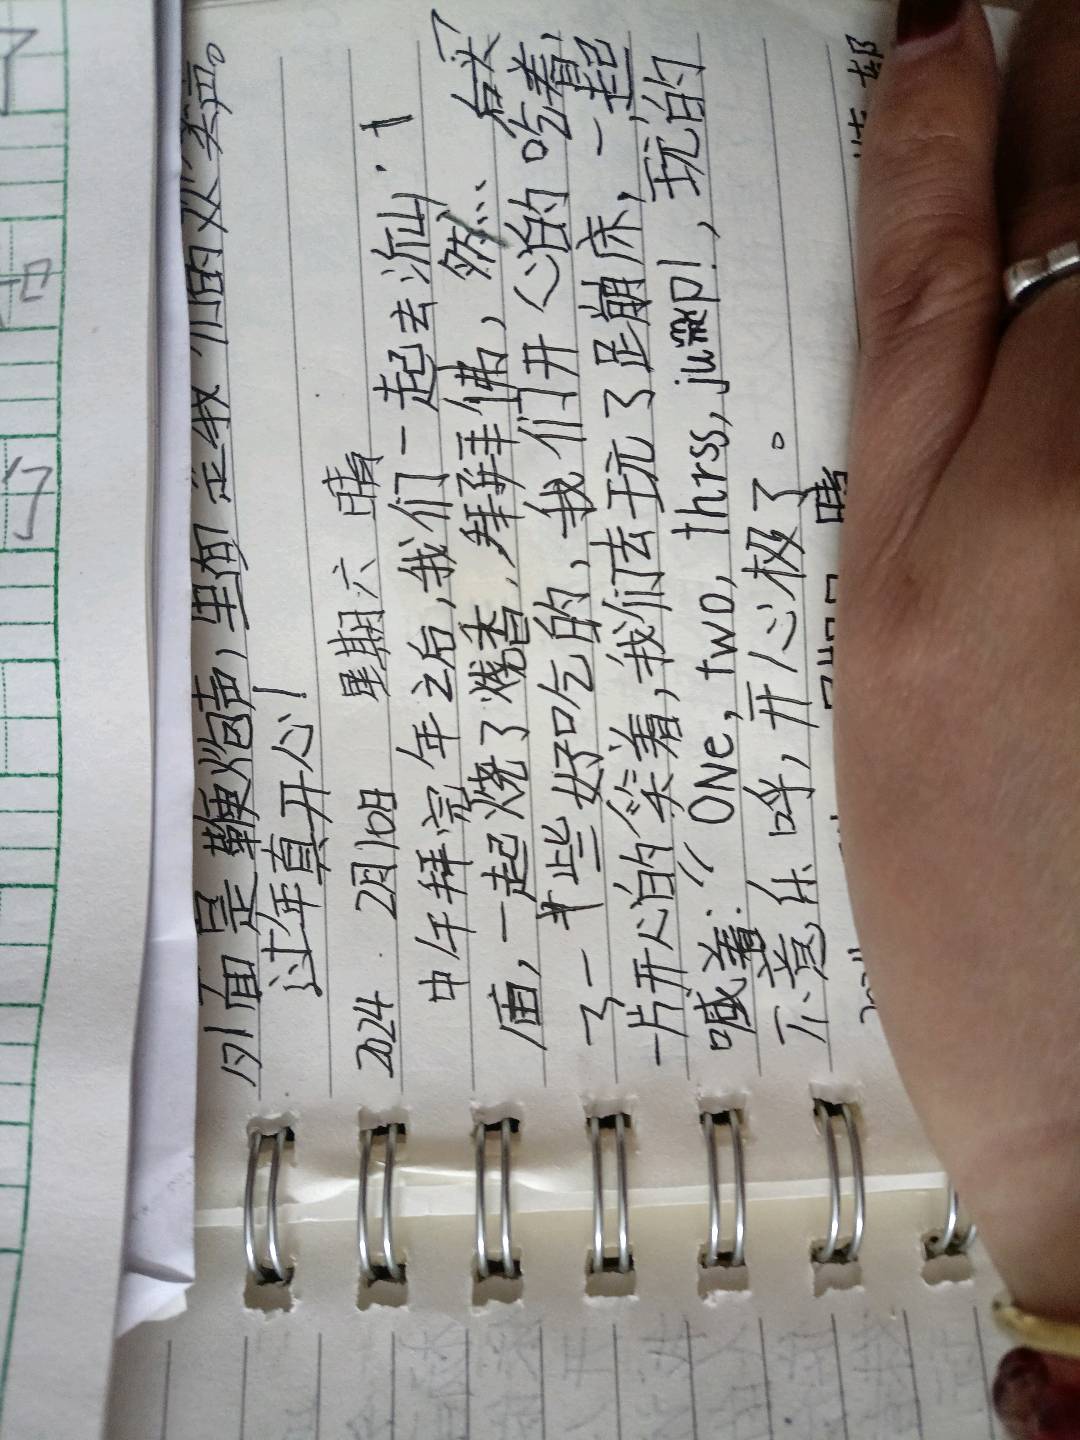 外面是鞭炮声，里面是我们的欢笑声。
过年真开心！
2024 2月10日 星期六 晴
中午拜完年之后，我们一起去沂山·
庙，一起烧了烧香，拜拜佛，然… 台买了
了一些好吃的，我们开心的吃着，
一片开心的笑着，我们去玩了足崩床，一起
喊着：“ONe, two, thrss, jump！，玩的
不意乐呼，开心极了。